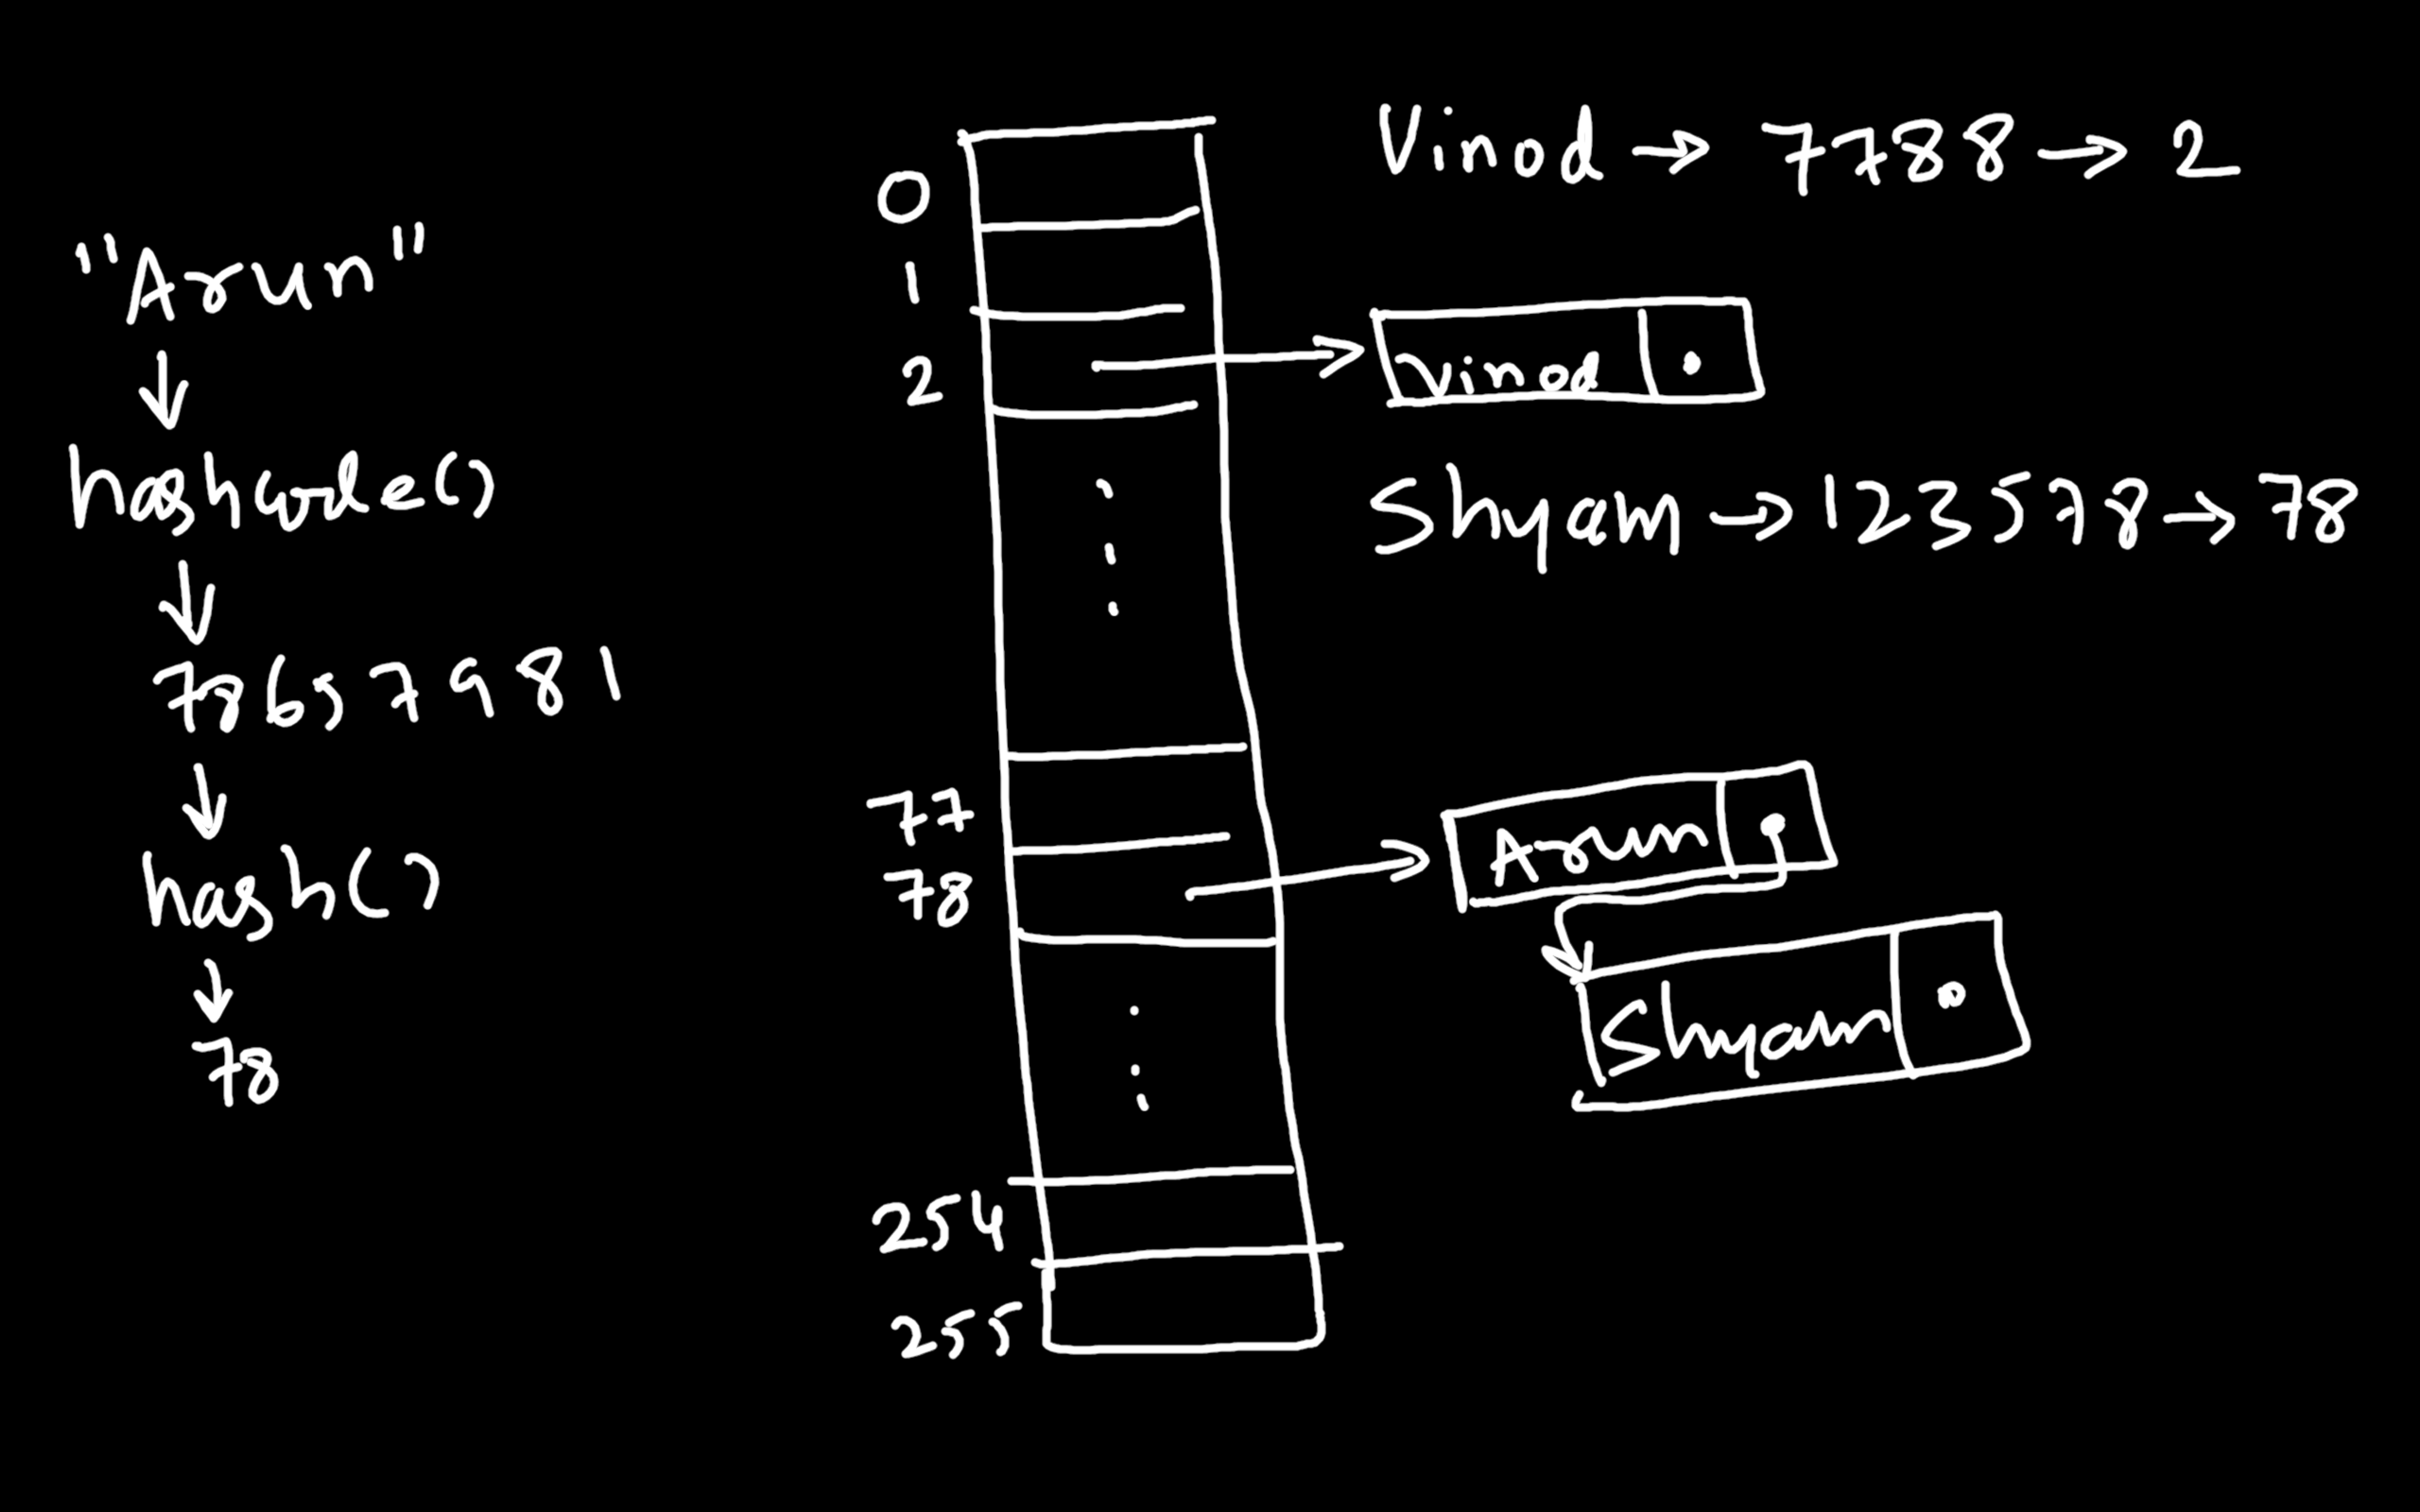 "Arun"
↓
hashcode()
↓
78657981
↓
hash()
↓
78
0
1
2
77
78
254
255
Vinod → 7788 → 2
Vinod
Shyam → 123578 → 78
Arun
Shyam